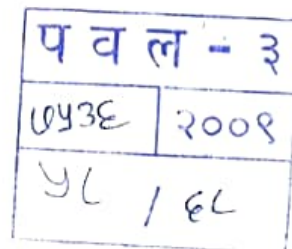 प व ल - ३
७५३६ २००९
५८ / ६८